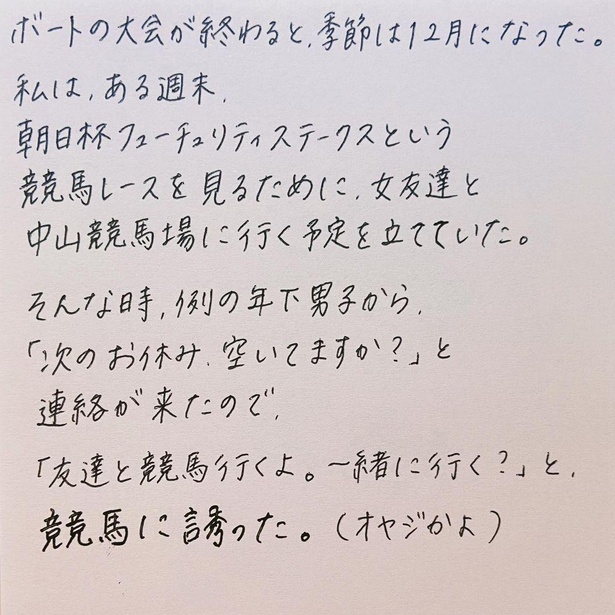 ボートの大会が終わると、季節は12月になった。
私は、ある週末、
朝日杯フューチュリティステークスという
競馬レースを見るために、女友達と
中山競馬場に行く予定を立てていた。
そんな時、例の年下男子から、
「次のお休み、空いてますか?」と
連絡が来たので、
「友達と競馬行くよ。一緒に行く?」と、
競馬に誘った。(オヤジかよ)